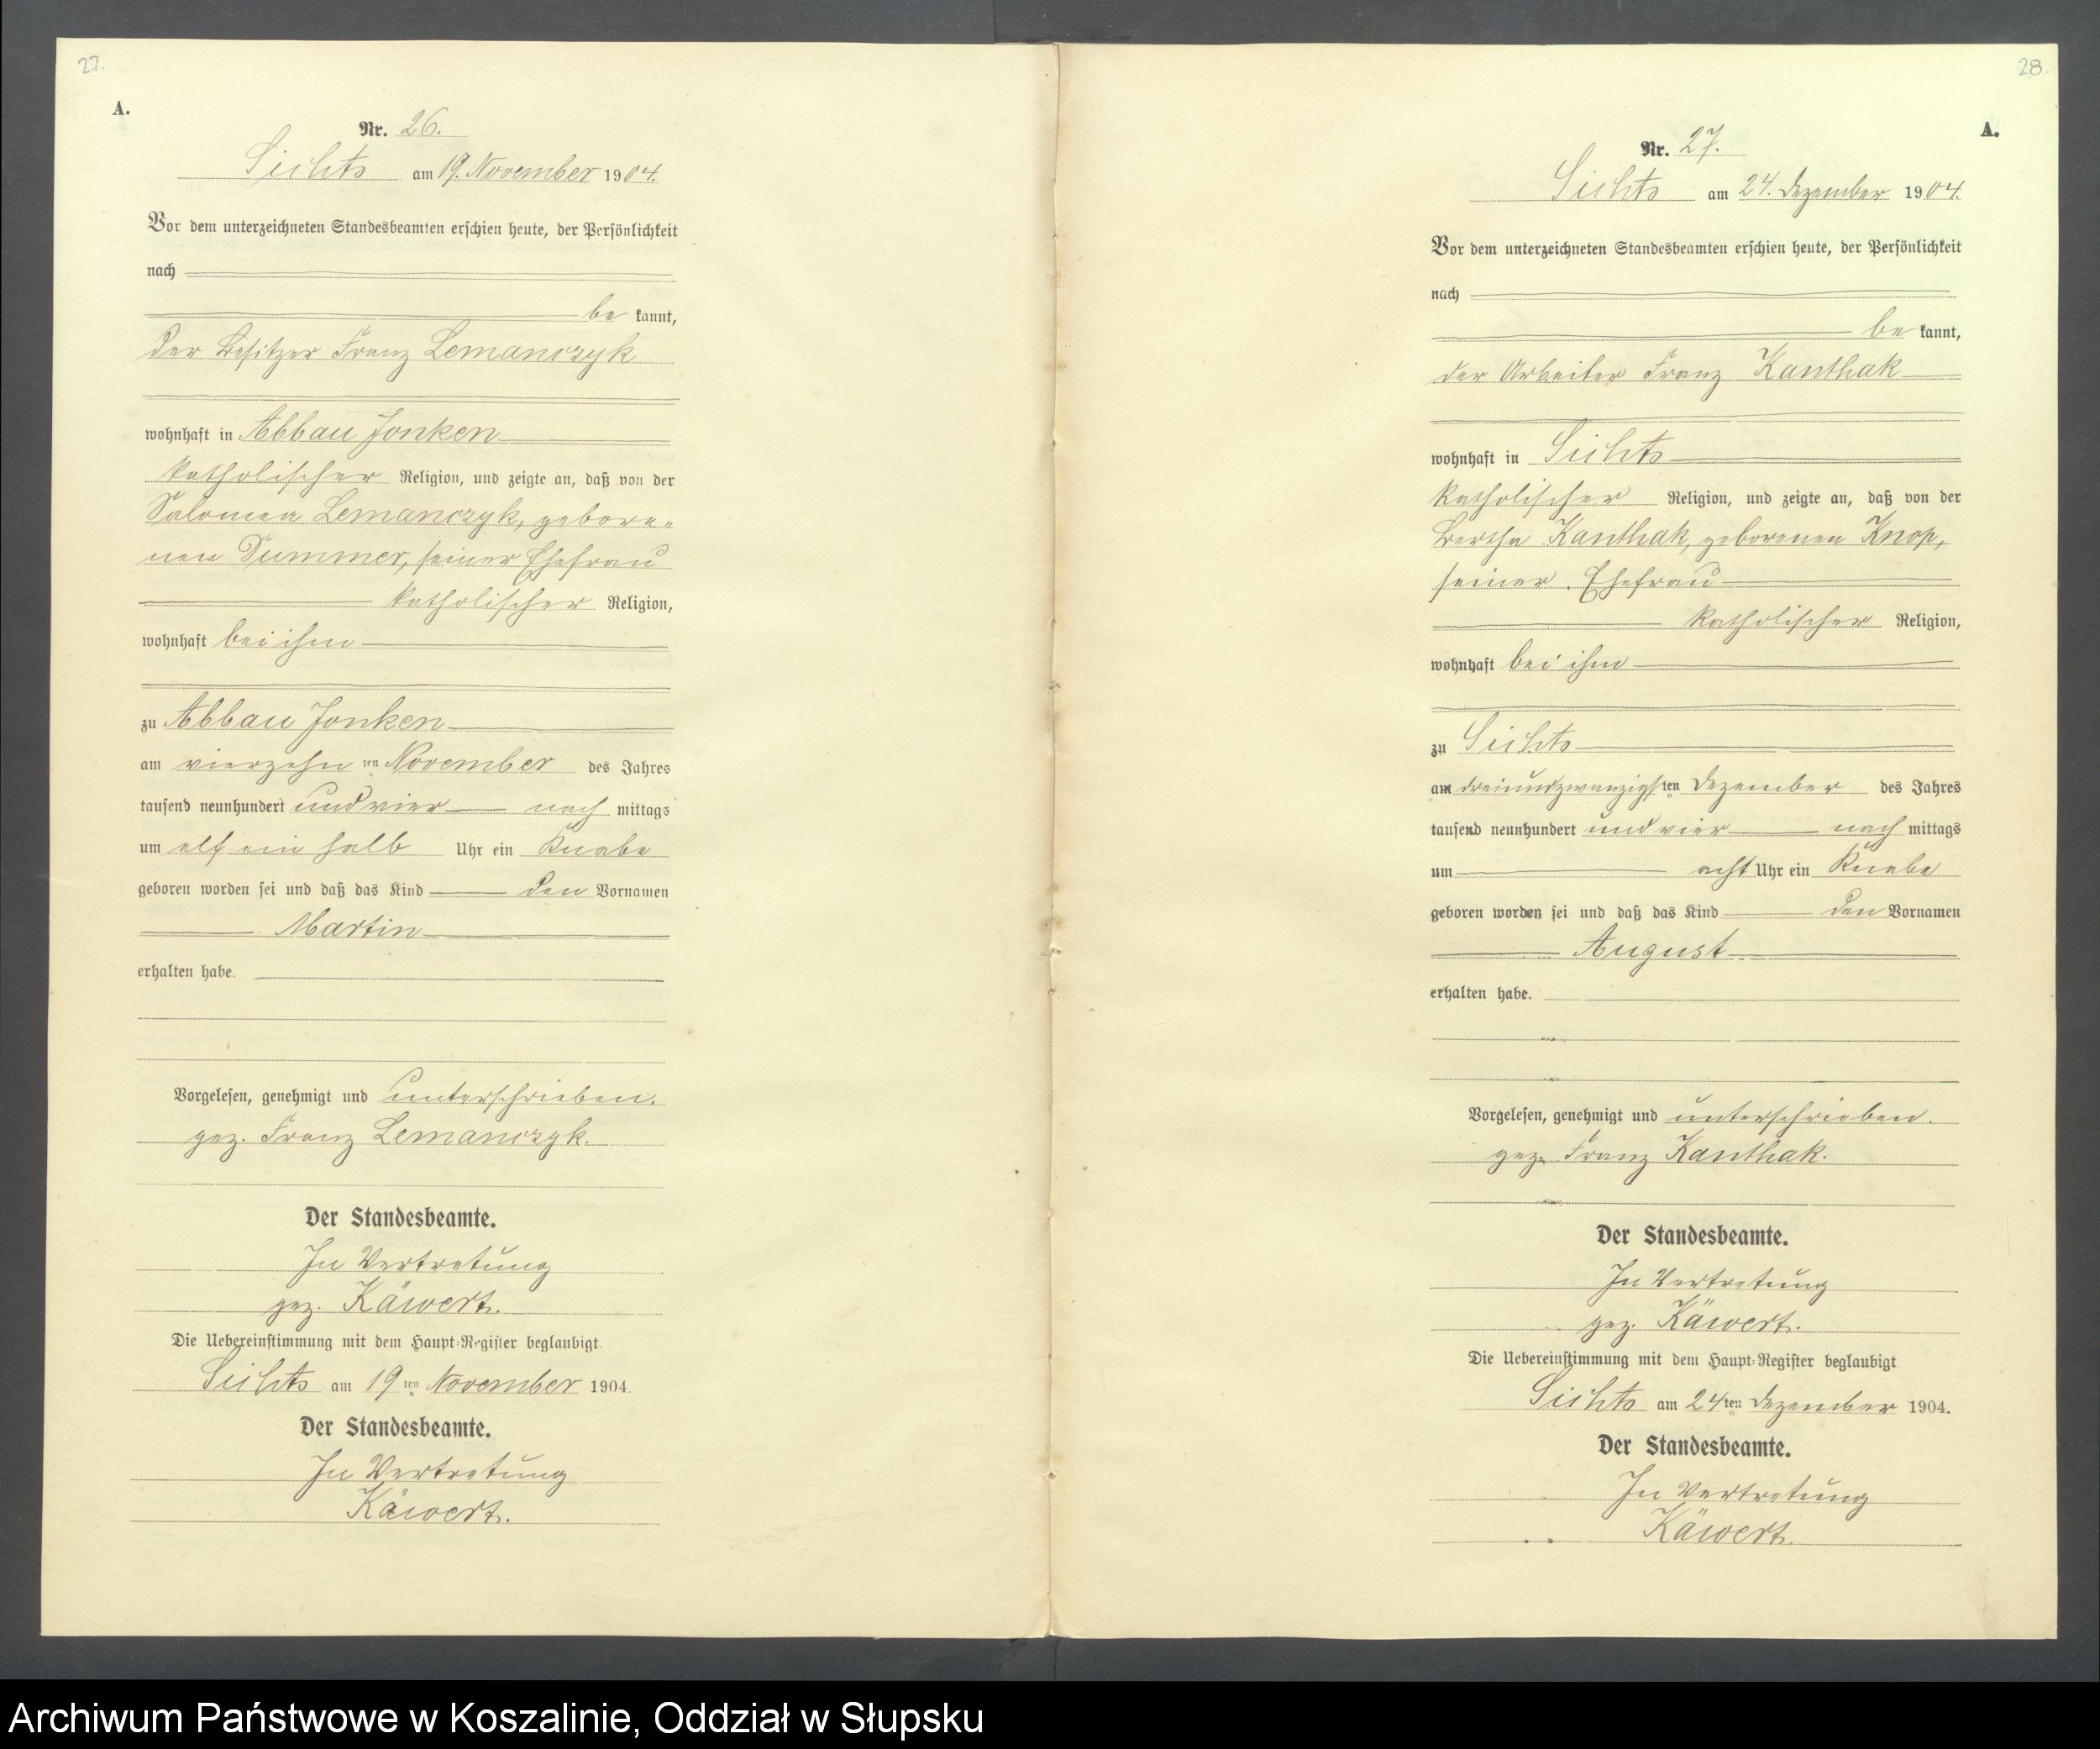 27.
A.
Nr. 26.
Sichts am 19. November 1904.
Vor dem unterzeichneten Standesbeamten erschien heute, der Persönlichkeit
nach
be kannt,
der Besitzer Franz Lemanczyk
wohnhaft in Abbau Jonken
katholischer Religion, und zeigte an, daß von der
Salomea Lemanczyk, gebore-
nen Dummer, seiner Ehefrau
katholischer Religion,
wohnhaft bei ihm
zu Abbau Jonken
am vierzehn ten November des Jahres
tausend neunhundert und vier nach mittags
um elf ein halb Uhr ein Knabe
geboren worden sei und daß das Kind den Vornamen
Martin
erhalten habe.
Vorgelesen, genehmigt und unterschrieben.
gez. Franz Lemanczyk.
Der Standesbeamte.
In Vertretung
gez. Käwert.
Die Uebereinstimmung mit dem Haupt-Register beglaubigt
Sichts am 19ten November 1904.
Der Standesbeamte.
In Vertretung
Käwert.
28.
A.
Nr. 27.
Sichts am 24. Dezember 1904.
Vor dem unterzeichneten Standesbeamten erschien heute, der Persönlichkeit
nach
be kannt,
der Arbeiter Franz Kanthak
wohnhaft in Sichts
katholischer Religion, und zeigte an, daß von der
Bertha Kanthak, geborenen Knop,
seiner Ehefrau
katholischer Religion,
wohnhaft bei ihm
zu Sichts
am dreiundzwanzigsten Dezember des Jahres
tausend neunhundert und vier nach mittags
um acht Uhr ein Knabe
geboren worden sei und daß das Kind den Vornamen
August
erhalten habe.
Vorgelesen, genehmigt und unterschrieben.
gez. Franz Kanthak.
Der Standesbeamte.
In Vertretung
gez. Käwert.
Die Uebereinstimmung mit dem Haupt-Register beglaubigt
Sichts am 24ten Dezember 1904.
Der Standesbeamte.
In Vertretung
Käwert.
Archiwum Państwowe w Koszalinie, Oddział w Słupsku